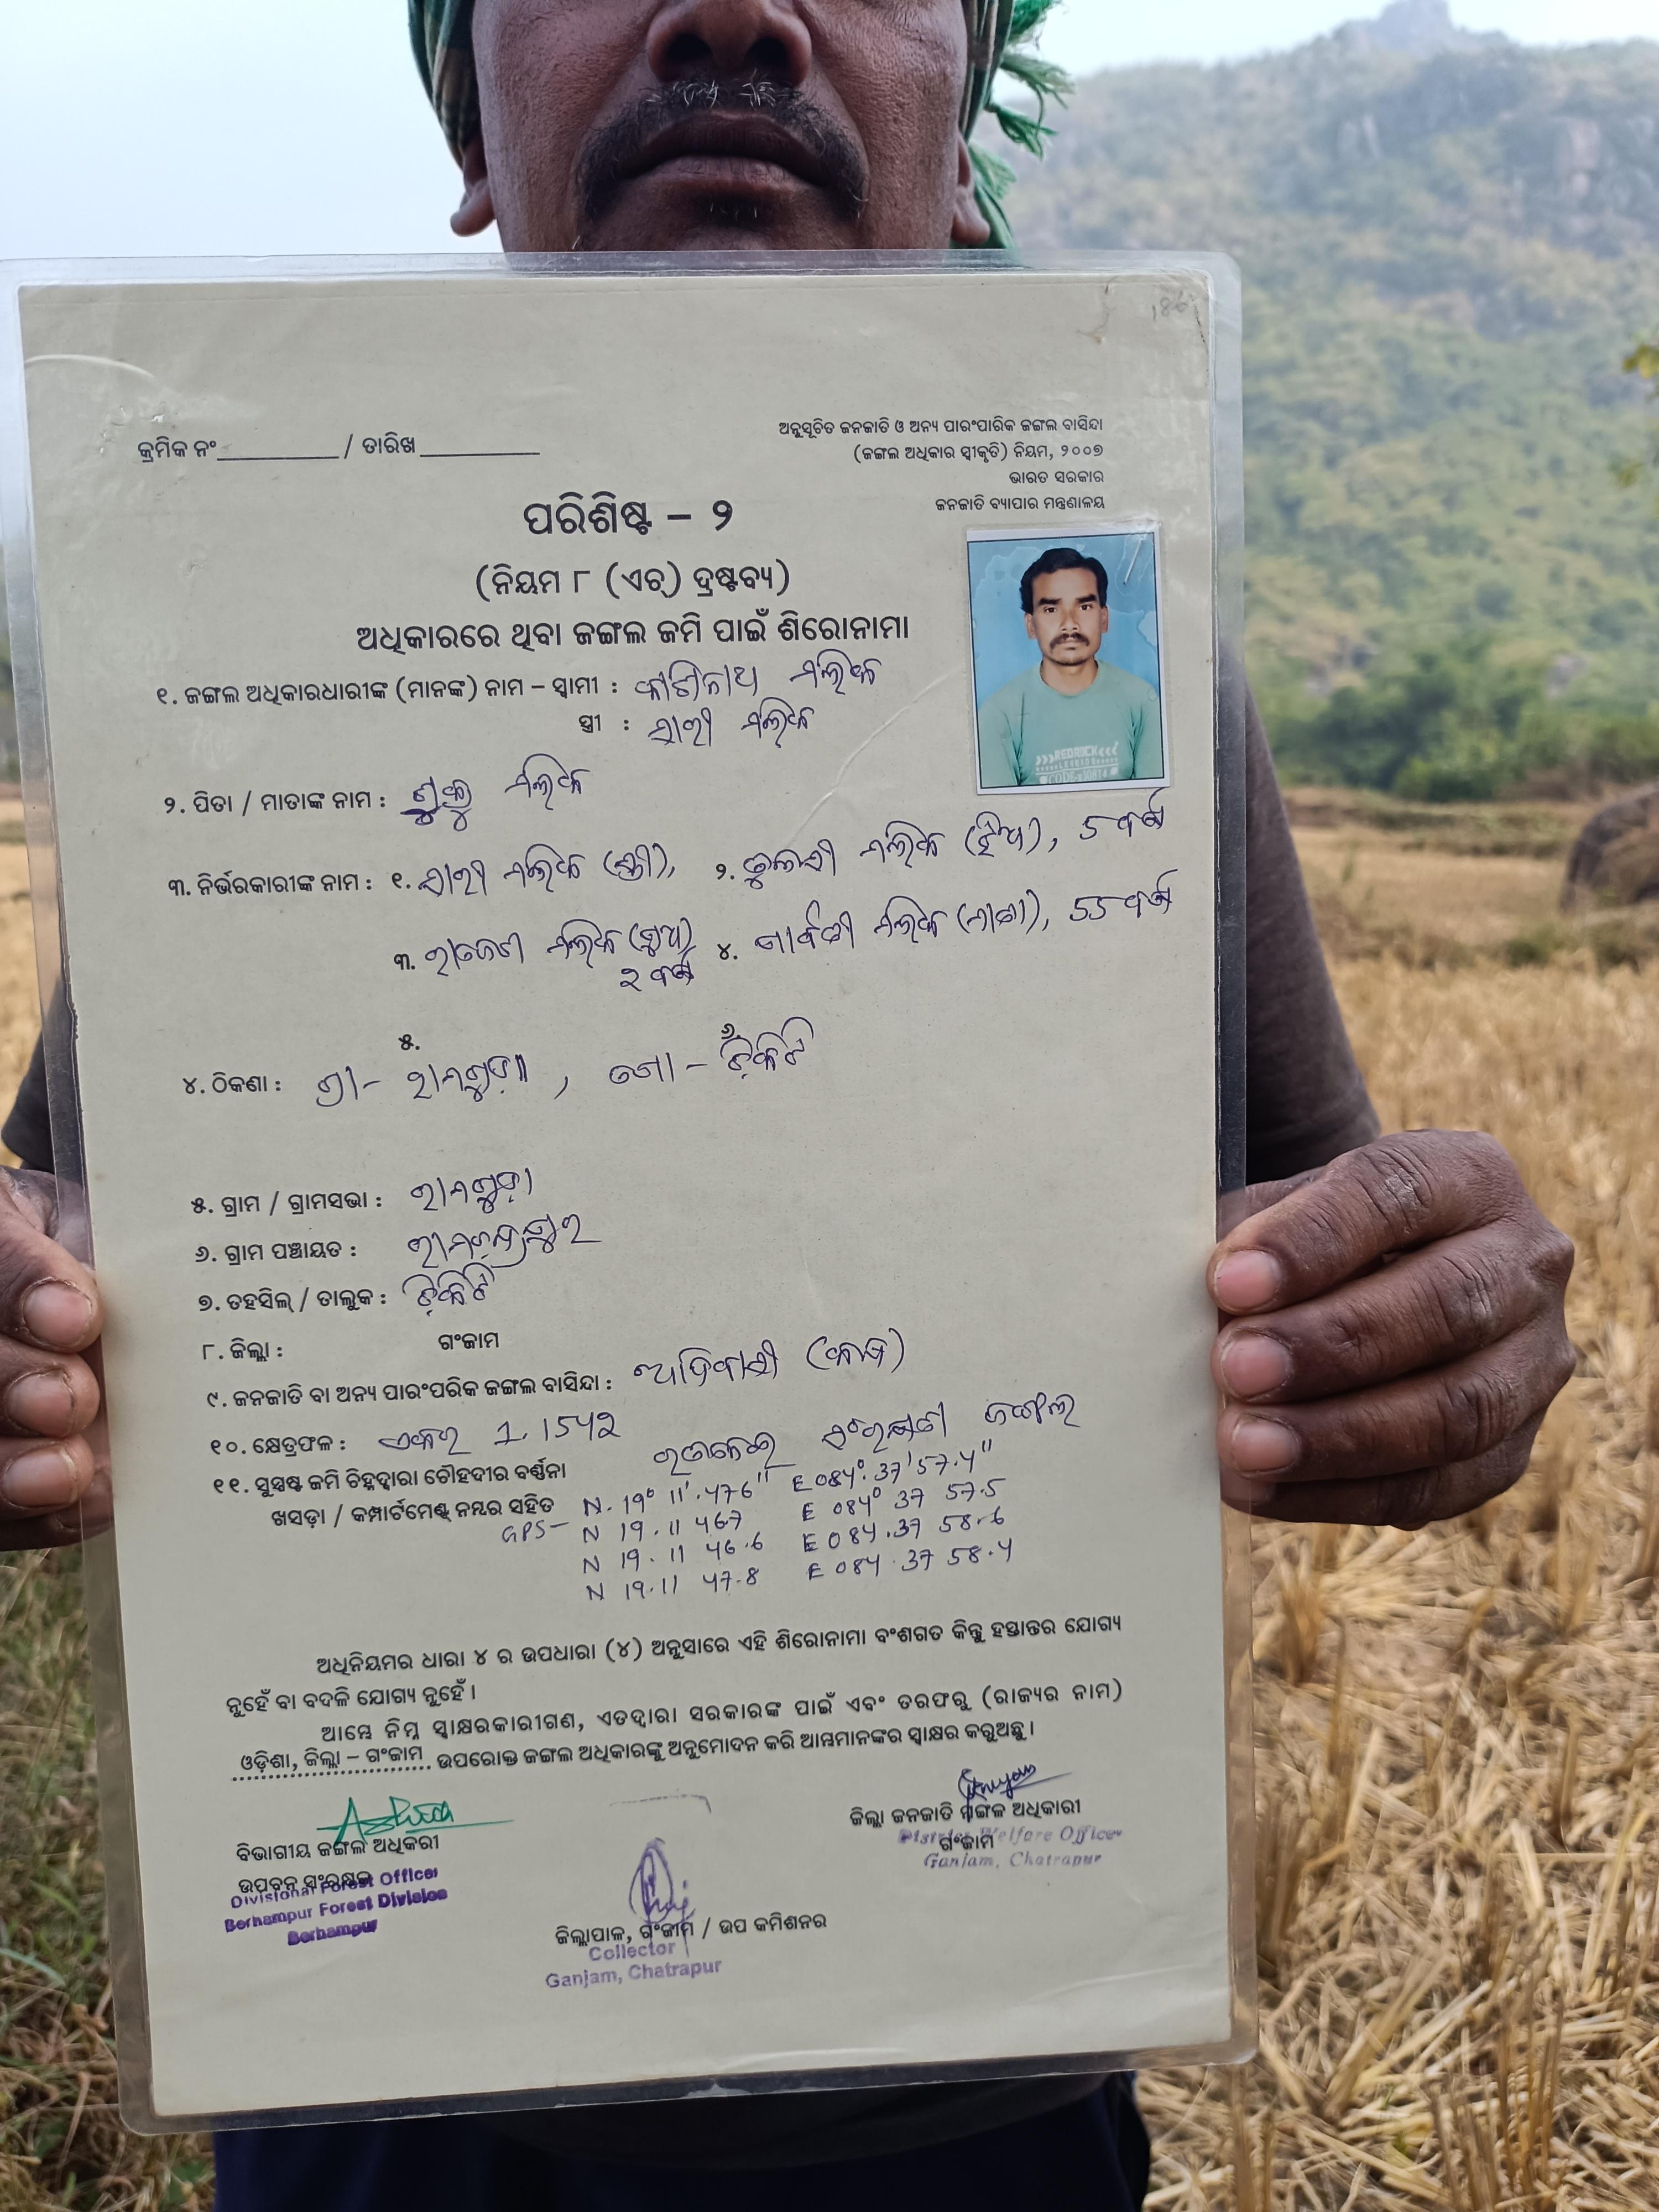 186
କ୍ରମିକ ନଂ__________ / ତାରିଖ__________
ଅନୁସୂଚିତ ଜନଜାତି ଓ ଅନ୍ୟ ପାରଂପାରିକ ଜଙ୍ଗଲ ବାସିନ୍ଦା
(ଜଙ୍ଗଲ ଅଧିକାର ସ୍ୱୀକୃତି) ନିୟମ, ୨୦୦୭
ଭାରତ ସରକାର
ଜନଜାତି ବ୍ୟାପାର ମନ୍ତ୍ରଣାଳୟ
ପରିଶିଷ୍ଟ – ୨
(ନିୟମ ୮ (ଏଚ୍) ଦ୍ରଷ୍ଟବ୍ୟ)
ଅଧିକାରରେ ଥିବା ଜଙ୍ଗଲ ଜମି ପାଇଁ ଶିରୋନାମା
REDROCK
୧. ଜଙ୍ଗଲ ଅଧିକାରଧାରୀଙ୍କ (ମାନଙ୍କ) ନାମ – ସ୍ୱାମୀ : କାଶୀନାଥ ମଲିକ
ସ୍ତ୍ରୀ : ମଲିକ
୨. ପିତା / ମାତାଙ୍କ ନାମ : ମଲିକ
୩. ନିର୍ଭରକାରୀଙ୍କ ନାମ : ୧. ମଲିକ (ସ୍ତ୍ରୀ), ୨. ତୁଳସୀ ମଲିକ (ଝିଅ), 5 ବର୍ଷ
୩. ମଲିକ (ପୁଅ) ୪. ପାର୍ବତୀ ମଲିକ (ମାଆ), 55 ବର୍ଷ
୨ ବର୍ଷ
୫. ୬.
୪. ଠିକଣା : ଗ୍ରା – ରାମଗୁଡ଼ା, ପୋ – ଚିକିଟି
୫. ଗ୍ରାମ / ଗ୍ରାମସଭା : ରାମଗୁଡ଼ା
୬. ଗ୍ରାମ ପଞ୍ଚାୟତ : ରାମଚନ୍ଦ୍ରପୁର
୭. ତହସିଲ୍ / ତାଲୁକ : ଚିକିଟି
୮. ଜିଲ୍ଲା : ଗଂଜାମ
୯. ଜନଜାତି ବା ଅନ୍ୟ ପାରଂପରିକ ଜଙ୍ଗଲ ବାସିନ୍ଦା : ଆଦିବାସୀ
୧୦. କ୍ଷେତ୍ରଫଳ : ଏକର 1.1542
୧୧. ସୁସ୍ପଷ୍ଟ ଜମି ଚିହ୍ନଦ୍ୱାରା ଚୌହଦୀର ବର୍ଣ୍ଣନା ସଂରକ୍ଷିତ ଜଙ୍ଗଲ
ଖସଡ଼ା / କମ୍ପାର୍ଟମେଣ୍ଟ ନମ୍ବର ସହିତ N. 19° 11'. 47.6" E 084°. 37' 57.4"
GPS – N 19. 11 46.7 E 084° 37 57.5
N 19. 11 46.6 E 084. 37 58.6
N 19. 11 47.8 E 084. 37 58.4
ଅଧିନିୟମର ଧାରା ୪ ର ଉପଧାରା (୪) ଅନୁସାରେ ଏହି ଶିରୋନାମା ବଂଶଗତ କିନ୍ତୁ ହସ୍ତାନ୍ତର ଯୋଗ୍ୟ
ନୁହେଁ ବା ବଦଳି ଯୋଗ୍ୟ ନୁହେଁ ।
ଆମ୍ଭେ ନିମ୍ନ ସ୍ୱାକ୍ଷରକାରୀଗଣ, ଏତଦ୍ୱାରା ସରକାରଙ୍କ ପାଇଁ ଏବଂ ତରଫରୁ (ରାଜ୍ୟର ନାମ)
ଓଡ଼ିଶା, ଜିଲ୍ଲା – ଗଂଜାମ ଉପରୋକ୍ତ ଜଙ୍ଗଲ ଅଧିକାରଙ୍କୁ ଅନୁମୋଦନ କରି ଆମ୍ଭମାନଙ୍କର ସ୍ୱାକ୍ଷର କରୁଅଛୁ ।
ବିଭାଗୀୟ ଜଙ୍ଗଲ ଅଧିକରୀ
ଉପବନ ସଂରକ୍ଷକ
Divisional Forest Officer
Berhampur Forest Division
Berhampur
ଜିଲ୍ଲାପାଳ, ଗଂଜାମ / ଉପ କମିଶନର
Collector
Ganjam, Chatrapur
ଜିଲ୍ଲା ଜନଜାତି ମଙ୍ଗଳ ଅଧିକାରୀ
ଗଂଜାମ
District Welfare Officer
Ganjam, Chatrapur